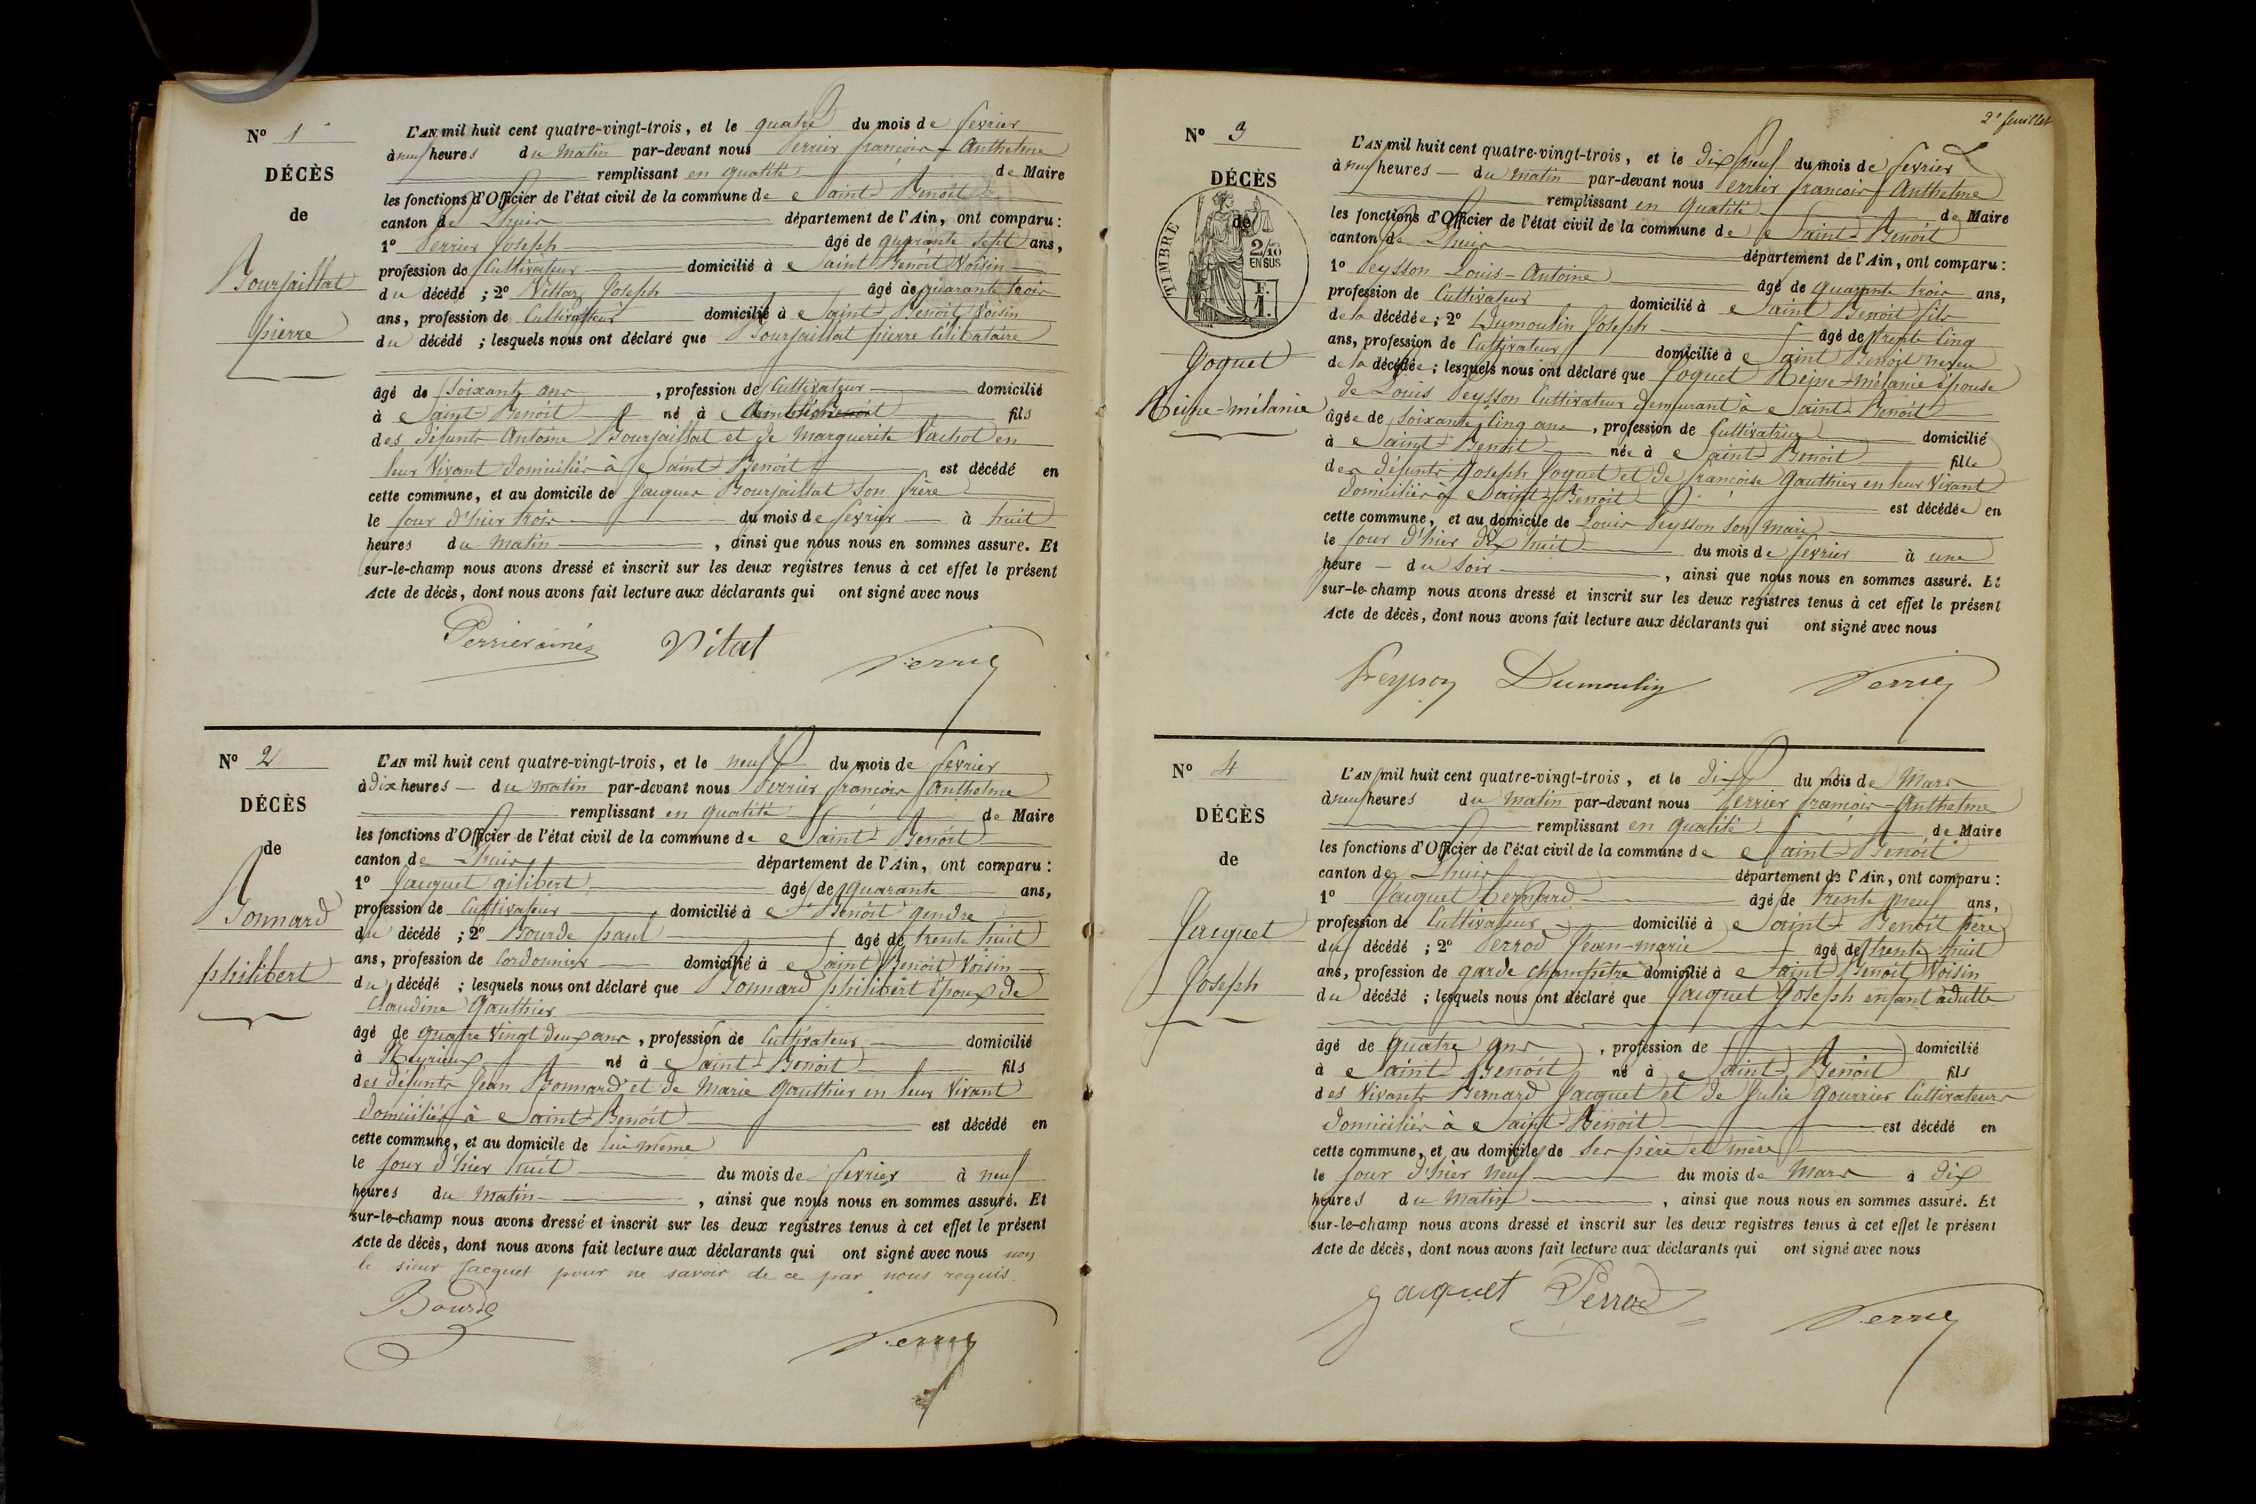 N° 1
DÉCÈS
de
Bourjaillat
pierre
L'AN mil huit cent quatre-vingt-trois, et le quatre du mois de fevrier
à neuf heures du matin par-devant nous Perrier françois Anthelme
remplissant en qualité de Maire
les fonctions d'Officier de l'état civil de la commune de Saint-Benoit
canton de Lhuis département de l'Ain, ont comparu :
1° Perrier Joseph âgé de quarante sept ans,
profession de Cultivateur domicilié à Saint Benoit Voisin
du décédé ; 2° Vittoz Joseph âgé de quarante trois
ans, profession de Cultivateur domicilié à Saint Benoit Voisin
du décédé ; lesquels nous ont déclaré que Bourjaillat pierre Célibataire
âgé de Soixante ans, profession de Cultivateur domicilié
à Saint Benoit né à fils
des défunts Antoine Bourjaillat et de Marguerite Vachot en
leur Vivant domiciliés à Saint-Benoit est décédé en
cette commune, et au domicile de Jacques Bourjaillat Son frère
le jour d'hier trois du mois de fevrier à huit
heures du matin, ainsi que nous nous en sommes assuré. Et
sur-le-champ nous avons dressé et inscrit sur les deux registres tenus à cet effet le présent
Acte de décès, dont nous avons fait lecture aux déclarants qui ont signé avec nous
Perrier ainé Vitat Perrier
N° 2
DÉCÈS
de
Bonnard
philibert
L'AN mil huit cent quatre-vingt-trois, et le neuf du mois de fevrier
à dix heures du matin par-devant nous Perrier françois Anthelme
remplissant en qualité de Maire
les fonctions d'Officier de l'état civil de la commune de Saint-Benoit
canton de Lhuis département de l'Ain, ont comparu :
1° Jacquet gilibert âgé de quarante ans,
profession de Cultivateur domicilié à St Benoit gendre
du décédé ; 2° Bourde paul âgé de trente huit
ans, profession de Cordonnier domicilié à Saint Benoit Voisin
du décédé ; lesquels nous ont déclaré que Bonnard philibert époux de
Claudine Gauthier
âgé de quatre vingt deux ans, profession de Cultivateur domicilié
à Reyrieux né à Saint-Benoit fils
des défunts Jean Bonnard et de Marie Gauthier en leur Vivant
domiciliés à Saint-Benoit est décédé en
cette commune, et au domicile de lui même
le jour d'hier huit du mois de fevrier à neuf
heures du matin, ainsi que nous nous en sommes assuré. Et
sur-le-champ nous avons dressé et inscrit sur les deux registres tenus à cet effet le présent
Acte de décès, dont nous avons fait lecture aux déclarants qui ont signé avec nous non
le sieur Jacquet pour ne savoir de ce par nous requis.
Bourde
Perrier
2e feuillet
N° 3
DÉCÈS
de
TIMBRE
2/10
EN SUS
F.
1.
Goguet
Reine-mélanie
L'AN mil huit cent quatre-vingt-trois, et le dix neuf du mois de fevrier
à neuf heures du matin par-devant nous Perrier françois Anthelme
remplissant en qualité de Maire
les fonctions d'Officier de l'état civil de la commune de Saint-Benoit
canton de Lhuis département de l'Ain, ont comparu :
1° Peysson Louis-Antoine âgé de quarante trois ans,
profession de Cultivateur domicilié à Saint Benoit fils
de la décédée ; 2° Dumoulin Joseph âgé de trente cinq
ans, profession de Cultivateur domicilié à Saint Benoit neveu
de la décédée ; lesquels nous ont déclaré que Goguet Reine-mélanie épouse
de Louis Peysson Cultivateur demeurant à Saint-Benoit
âgée de soixante cinq ans, profession de Cultivatrice domicilié
à Saint-Benoit née à Saint Benoit fille
des défunts Joseph Goguet et de françoise Gauthier en leur Vivant
domiciliés à Saint-Benoit est décédée en
cette commune, et au domicile de Louis Peysson Son mari
le jour d'hier dix huit du mois de fevrier à une
heure du soir, ainsi que nous nous en sommes assuré. Et
sur-le-champ nous avons dressé et inscrit sur les deux registres tenus à cet effet le présent
Acte de décès, dont nous avons fait lecture aux déclarants qui ont signé avec nous
Peysson Dumoulin Perrier
N° 4
DÉCÈS
de
Jacquet
Joseph
L'AN mil huit cent quatre-vingt-trois, et le dix du mois de Mars
à neuf heures du matin par-devant nous Perrier françois-Anthelme
remplissant en qualité de Maire
les fonctions d'Officier de l'état civil de la commune de Saint-Benoit
canton de Lhuis département de l'Ain, ont comparu :
1° Jacquet Bernard âgé de trente neuf ans,
profession de Cultivateur domicilié à Saint-Benoit père
du décédé ; 2° Perrod Jean-marie âgé de trente huit
ans, profession de garde champêtre domicilié à Saint-Benoit Voisin
du décédé ; lesquels nous ont déclaré que Jacquet Joseph enfant adulte
âgé de quatre ans, profession de domicilié
à Saint Benoit né à Saint-Benoit fils
des Vivants Bernard Jacquet et de Julie Gourrier Cultivateurs
domiciliés à Saint-Benoit est décédé en
cette commune, et au domicile de ses père et mère
le jour d'hier neuf du mois de Mars à dix
heures du matin, ainsi que nous nous en sommes assuré. Et
sur-le-champ nous avons dressé et inscrit sur les deux registres tenus à cet effet le présent
Acte de décès, dont nous avons fait lecture aux déclarants qui ont signé avec nous
Jacquet Perrod
Perrier